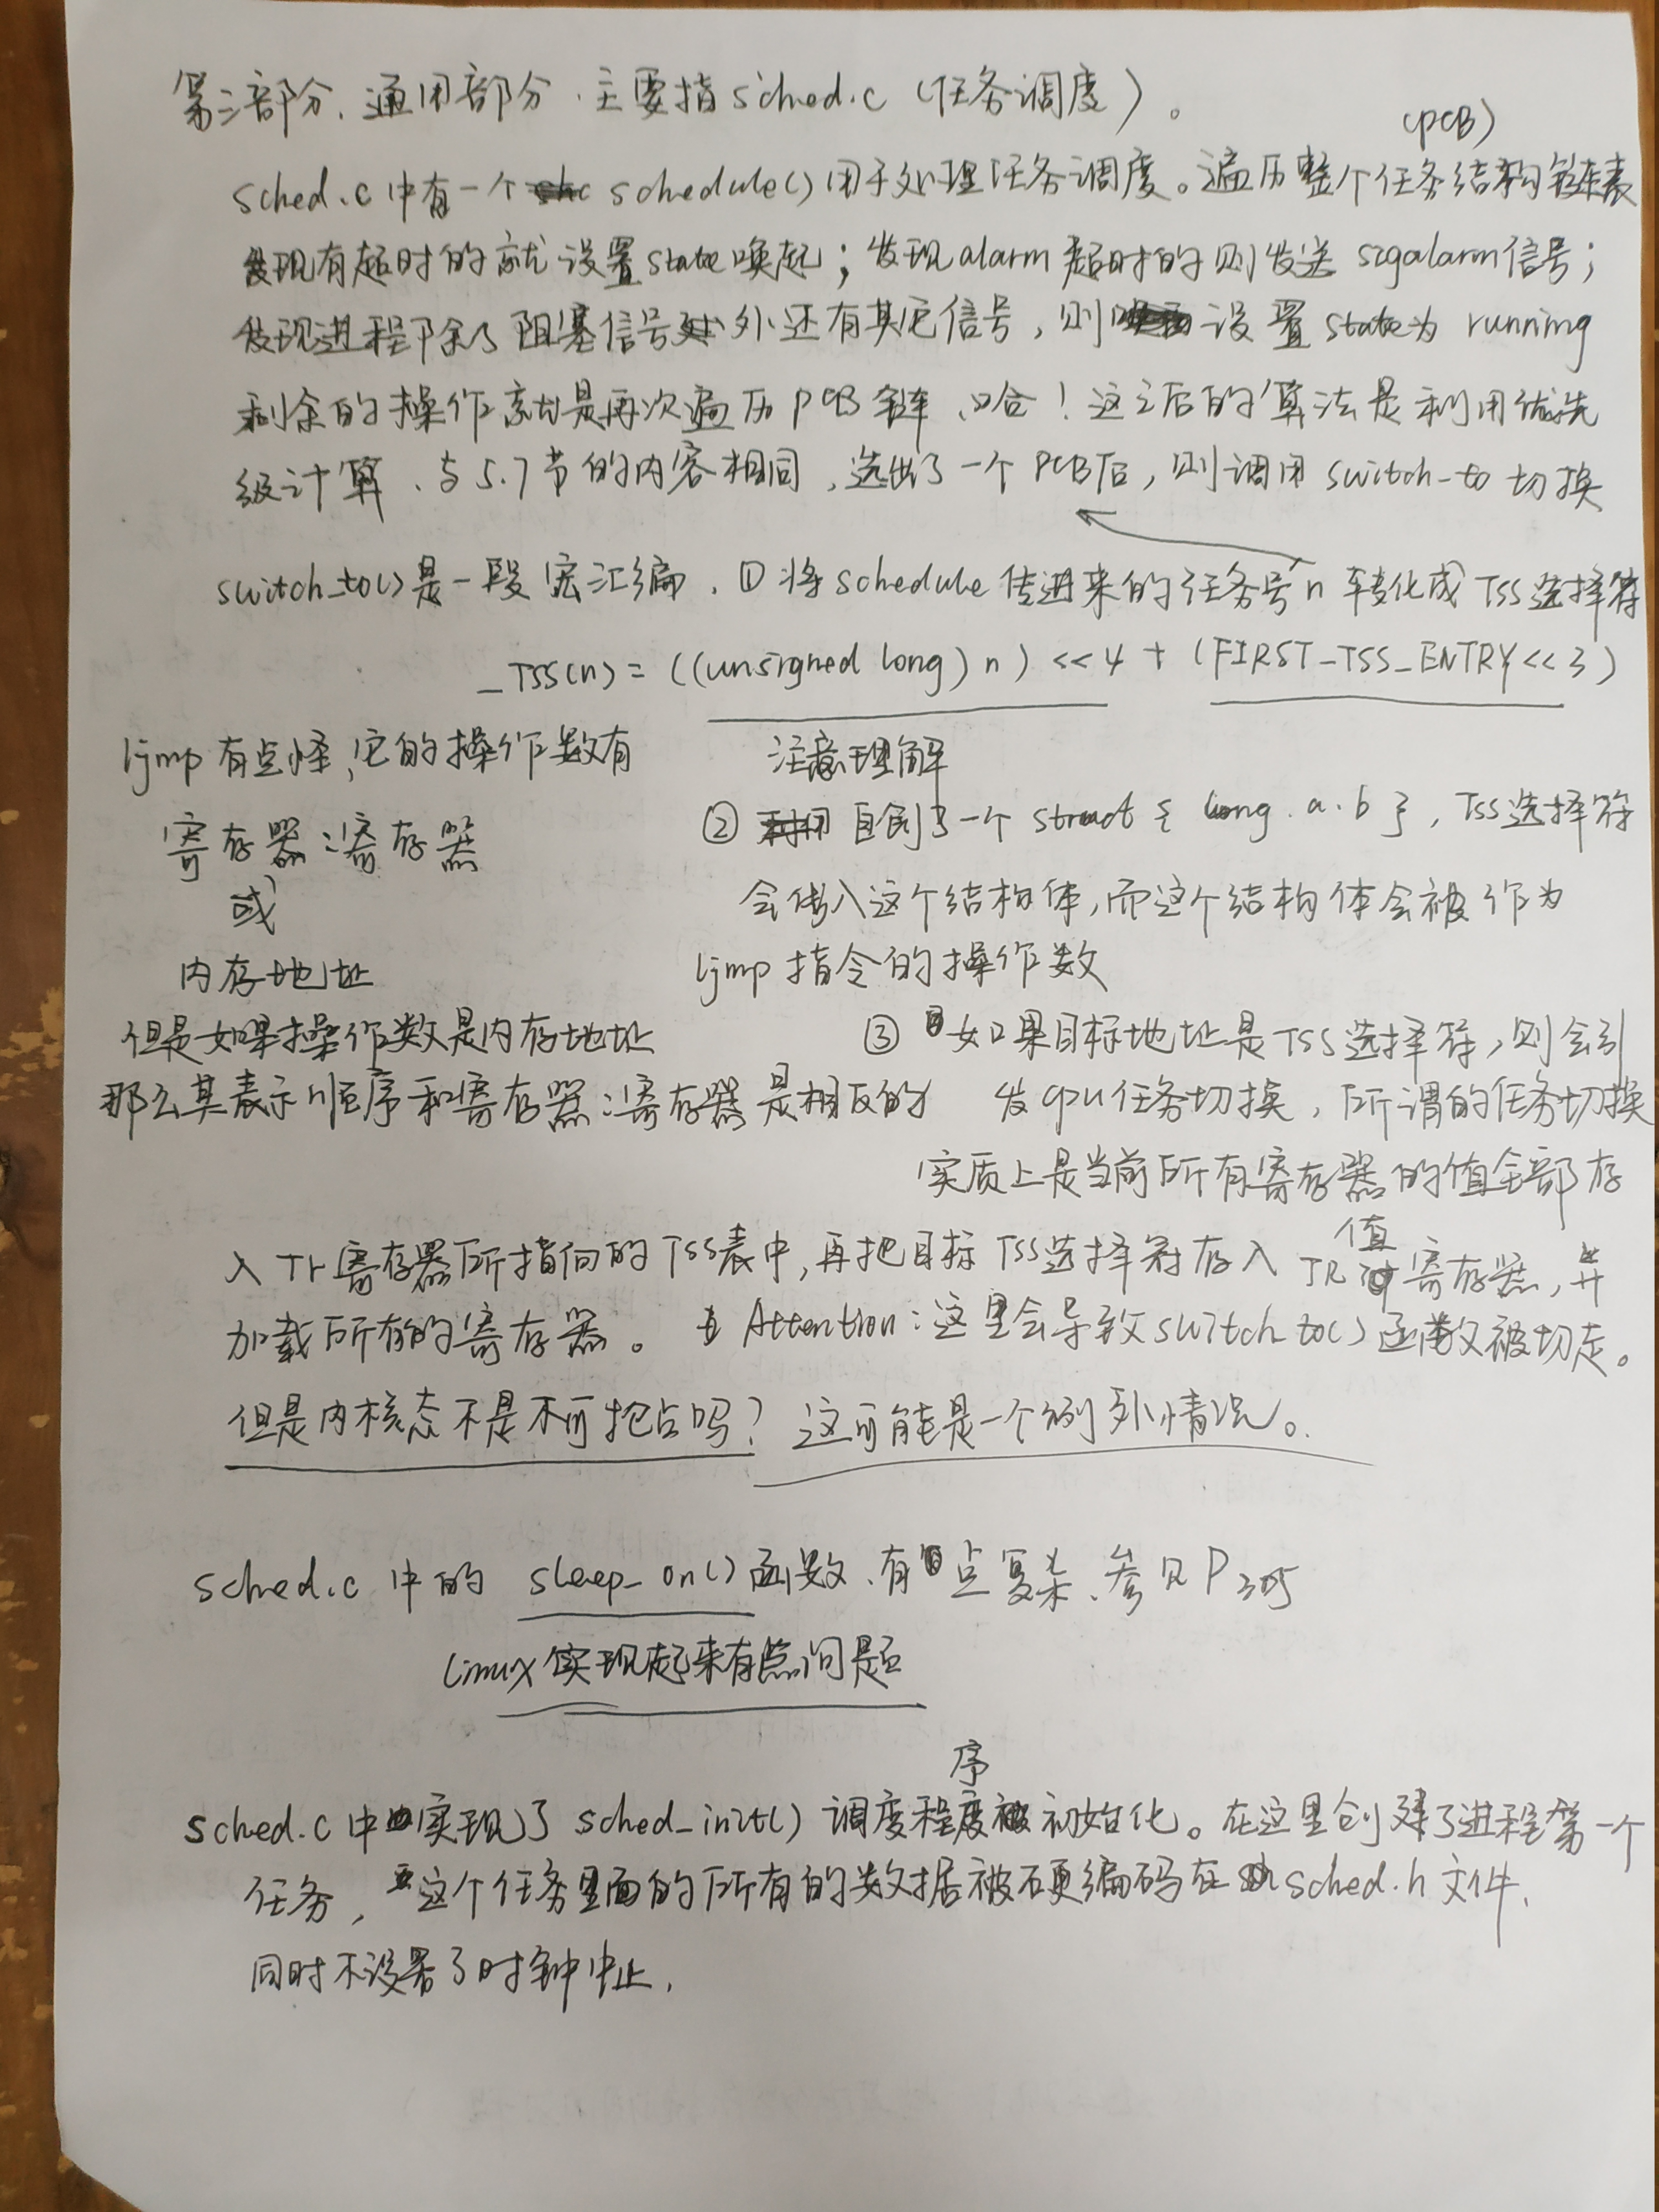 第二部分、通用部分、主要指sched.c（任务调度）。
(PCB)
sched.c中有一个schedule()用于处理任务调度。遍历整个任务结构链表
发现有超时的就设置state唤起；发现alarm超时的则发送sigalarm信号；
发现进程除了阻塞信号外还有其它信号，则设置state为running
剩余的操作就是再次遍历PCB链、哈！这之后的算法是利用优先
级计算、与5.7节的内容相同，选出了一个PCB后，则调用switch_to切换
switch_to()是一段宏汇编，①将schedule传进来的任务号n转化成TSS选择符
_TSS(n)=((unsigned long)n)<<4+(FIRST_TSS_ENTRY<<3)
注意理解
ljmp有点怪，它的操作数有
寄存器:寄存器
或
内存地址
但是如果操作数是内存地址
那么其表示顺序和寄存器:寄存器是相反的
②自创了一个struct { long. a.b }，TSS选择符
会传入这个结构体，而这个结构体会被作为
ljmp指令的操作数
③如果目标地址是TSS选择符，则会引
发cpu任务切换，所谓的任务切换
实质上是当前所有寄存器的值全部存
入Tr寄存器所指向的TSS表中，再把目标TSS选择符存入TR寄存器，并
值
加载所有的寄存器。Attention：这里会导致switch_to()函数被切走。
但是内核态不是不可抢占吗？这可能是一个例外情况。
sched.c中的sleep_on()函数、有点复杂、参见P305
Linux实现起来有点问题
序
sched.c中实现了sched_init()调度程度初始化。在这里创建了进程第一个
任务，这个任务里面的所有的数据被硬编码在sched.h文件、
同时不设置了时钟中止，